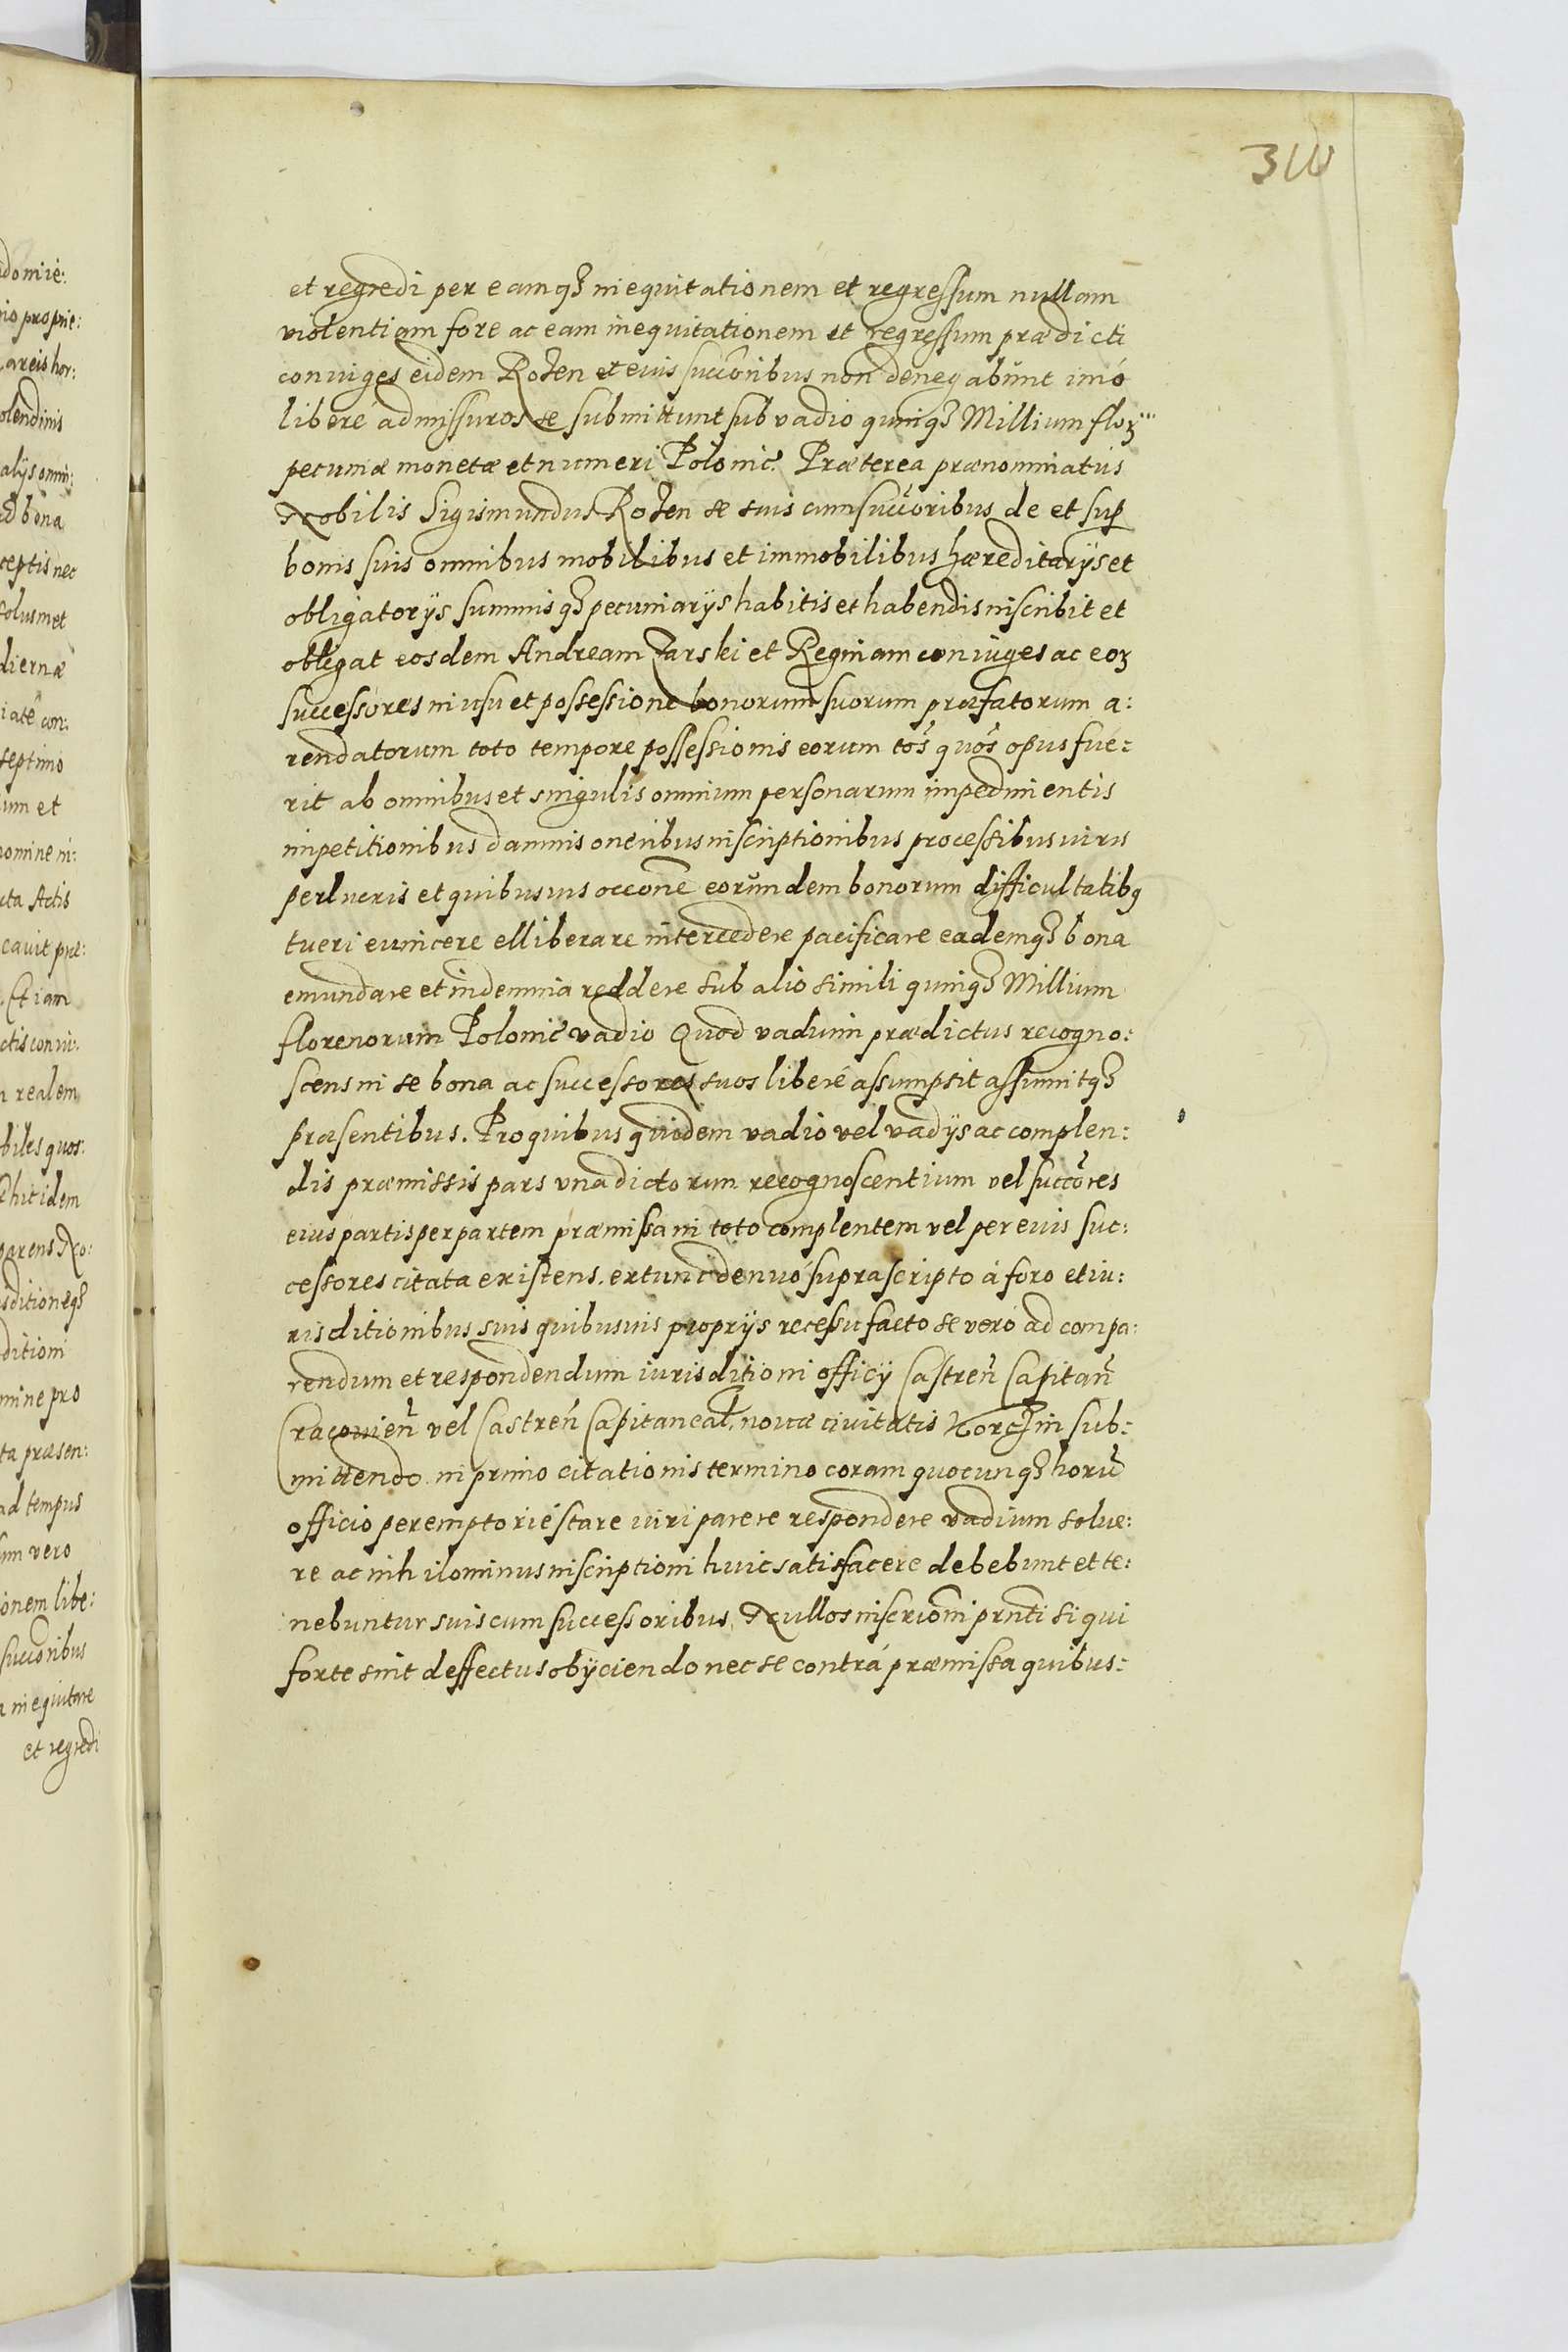 et regredi per eamq3 inequitationem et regressum nullam
violentiam fore ac eam inequitationem et regressum prædicti
coniuges eidem Rożen et eius succõribus non denegabunt imó
liberé admissuros se submittunt sub vadio quinq3 Millium florʒ
pecuniæ monetæ et numeri Polonic. Præterea prænominatus
Nobilis Sigismundus Rożen se suis cum succ̃oribus de et sup
bonis suis omnibus mobilibus et immobilibus hæreditarijs et
obligatorijs summisq3 pecuniarijs habitis et habendis inscribit et
obligat eosdem Andream Żarski et Reginam coniuges ac eorʒ
successores in usu et possessione bonorum suorum præfatorum a:
rendatorum toto tempore possessionis eorum tõs quõs opus fue:
rit ab omnibus et singulis omnium personarum impedimentis
impetitionibus damnis oneribus inscriptionibus processibus iuris
perlucris et quibusuis occõne eorundem bonorum difficultatibq
tueri euincere elliberare intercedere pacificare eademq3 bona
emundare et indemnia reddere sub alio simili quinq3 Millium
florenorum Polonic vadio Quod vadium prædictus recogno:
scens in se bona ac successores suos liberé assumpsit assumitq3
præsentibus. Pro quibus quidem vadio vel vadijs ac complen:
dis præmissis pars vna dictorum recognoscentium vel succõres
eius partis per partem præmissa in toto complentem vel per euis suc:
cessores citata existens. extunc denuó suprascripto á foro et iu:
risditionibus suis quibusuis proprijs recessu facto se veró ad compa:
rendum et respondendum iurisditioni officij Castreñ Capitañ
Cracouieñ vel Castreñ Capitaneal, nouæ ciuitatis Korczin sub:
mittendo in primo citationis termino coram quocunq3 horũ
officio peremptorié stare iuri parere respondere vadium solue:
re ac nihilominus inscriptioni huic satisfacere debebunt et te:
nebuntur suis cum successoribus, Nullos inscriõni prñti si qui
forte sint deffectus obijciendo nec se contrá præmissa quibus: